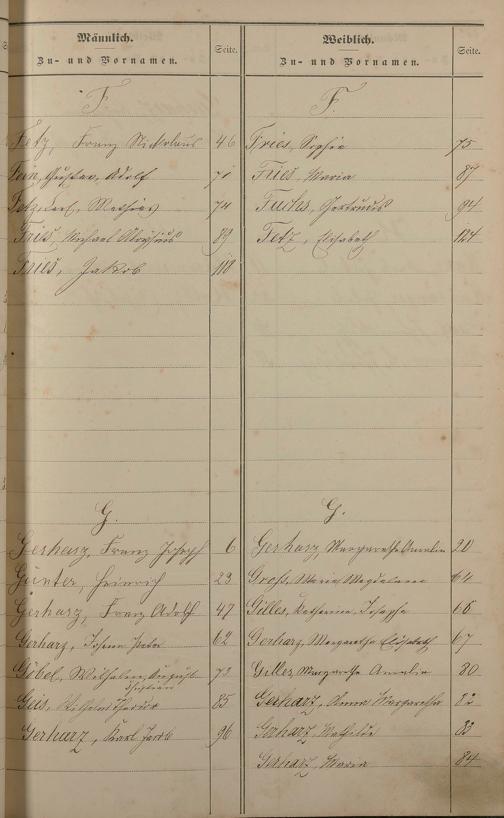 Männlich.
Zu- und Vornamen.
Seite.
F.
Fetz, Franz Nickolaus 46
Gustav, Adolf 71
Mathias 74
Fries, Michael Aloysius 89
Fries, Jakob 118
G.
Gerharz, Franz Joseph 6
Günter, Heinrich 29
Gerharz, Franz Adolf 47
Gerharz, Johann Peter 62
Göbel, Wilhelm August 73
Geis, 85
Gerharz, Karl Jacob 96
Weiblich.
Zu- und Vornamen.
Seite.
F.
Fries, Sophie 75
Fries, Maria 87
Fuchs, Gertrude 94
Fetz, Elisabeth 124
G.
Gerharz, Margarethe Amalia 20
Groß, Maria Magdalena 64
Gilles, Katharina, Josepha 66
Gerharz, Margaretha Elisabeth 67
Gilles, Margaretha Amalia 80
Gerharz, Anna Margaretha 82
Gerharz, Mathilde 83
Gerharz, Maria 84